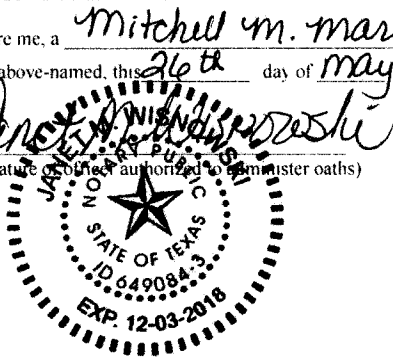 re me, a Mitchell m. mar
above-named, this 26th day of may
ature of officer authorized to administer oaths)
JANET M. WISN SKI
NOTARY PUBLIC
STATE OF TEXAS
ID 649084-3
EXP. 12-03-2018